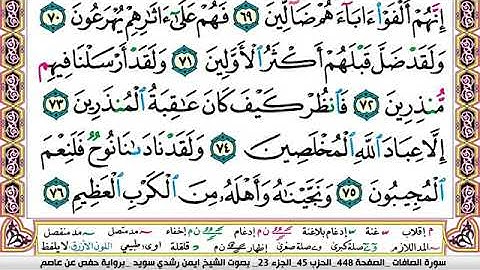 إِنَّهُمْ أَلْفَوْا۟ ءَابَآءَهُمْ ضَآلِّينَ ٦٩ فَهُمْ عَلَىٰٓ ءَاثَٰرِهِمْ يُهْرَعُونَ ٧٠
وَلَقَدْ ضَلَّ قَبْلَهُمْ أَكْثَرُ ٱلْأَوَّلِينَ ٧١ وَلَقَدْ أَرْسَلْنَا فِيهِم
مُّنذِرِينَ ٧٢ فَٱنظُرْ كَيْفَ كَانَ عَٰقِبَةُ ٱلْمُنذَرِينَ ٧٣
إِلَّا عِبَادَ ٱللَّهِ ٱلْمُخْلَصِينَ ٧٤ وَلَقَدْ نَادَىٰنَا نُوحٌ فَلَنِعْمَ
ٱلْمُجِيبُونَ ٧٥ وَنَجَّيْنَٰهُ وَأَهْلَهُۥ مِنَ ٱلْكَرْبِ ٱلْعَظِيمِ ٧٦
م إقلاب غنة إدغام بلاغنة إدغام إخفاء مد متصل مد منفصل
المد اللازم صلة كبرى صلة صغرى إظهار قلقلة اوى، طبيعي اللون الأزرق لا يلفظ
سورة الصافات _الصفحة 448_ الحزب 45_ الجزء 23 _ بصوت الشيخ ايمن رشدي سويد _برواية حفص عن عاصم